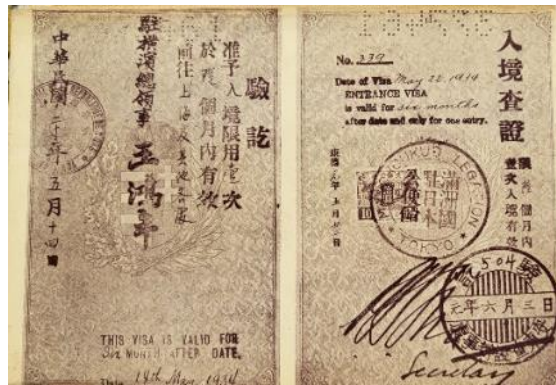 驗訖
准予入境限用壹次
於 個月內有效
前往上海及其他各處
駐橫濱總領事
王鴻年
中華民國二十 年五月十四日
THIS VISA IS VALID FOR
Six MONTH AFTER DATE.
Date 14th May, 1934
入境查證
No. 339
Date of Visa May 22, 1934
ENTRANCE VISA
is valid for six months
after date and only for one entry.
個月內
壹次入境有效
康德元年五月 日
MANCHOUKUO LEGATION
TOKYO
滿洲國
駐日本
公使館
504
元年六月三日
Secretary